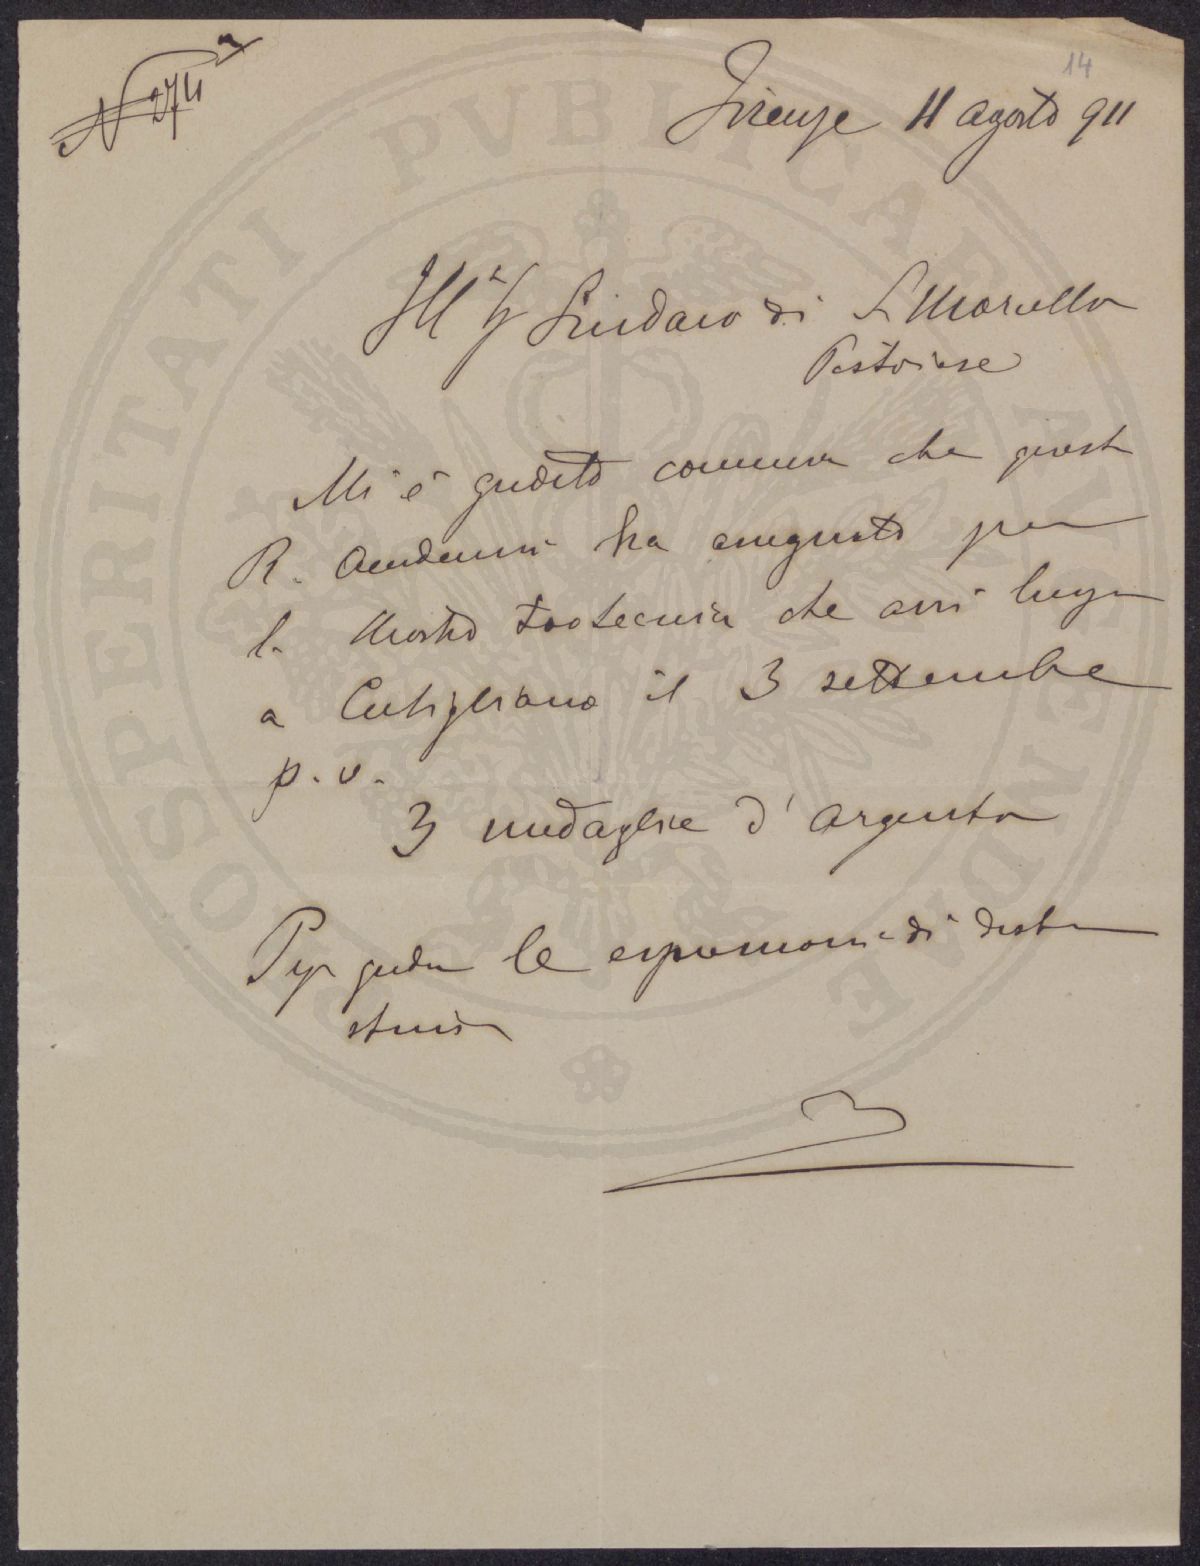 N 274
14
Firenze 11 agosto 911
Ill Sg Sindaco di S Marcello
Pistoiese
Mi è gradito comunica che questa
R. Accademia ha assegnato per
la Mostra Zootecnica che avrà luogo
a Cutigliano il 3 settembre
p. v.
3 medaglie d'argento
le espressioni di distinta
stima
PROSPERITATI PVBLICAE AVGENDAE